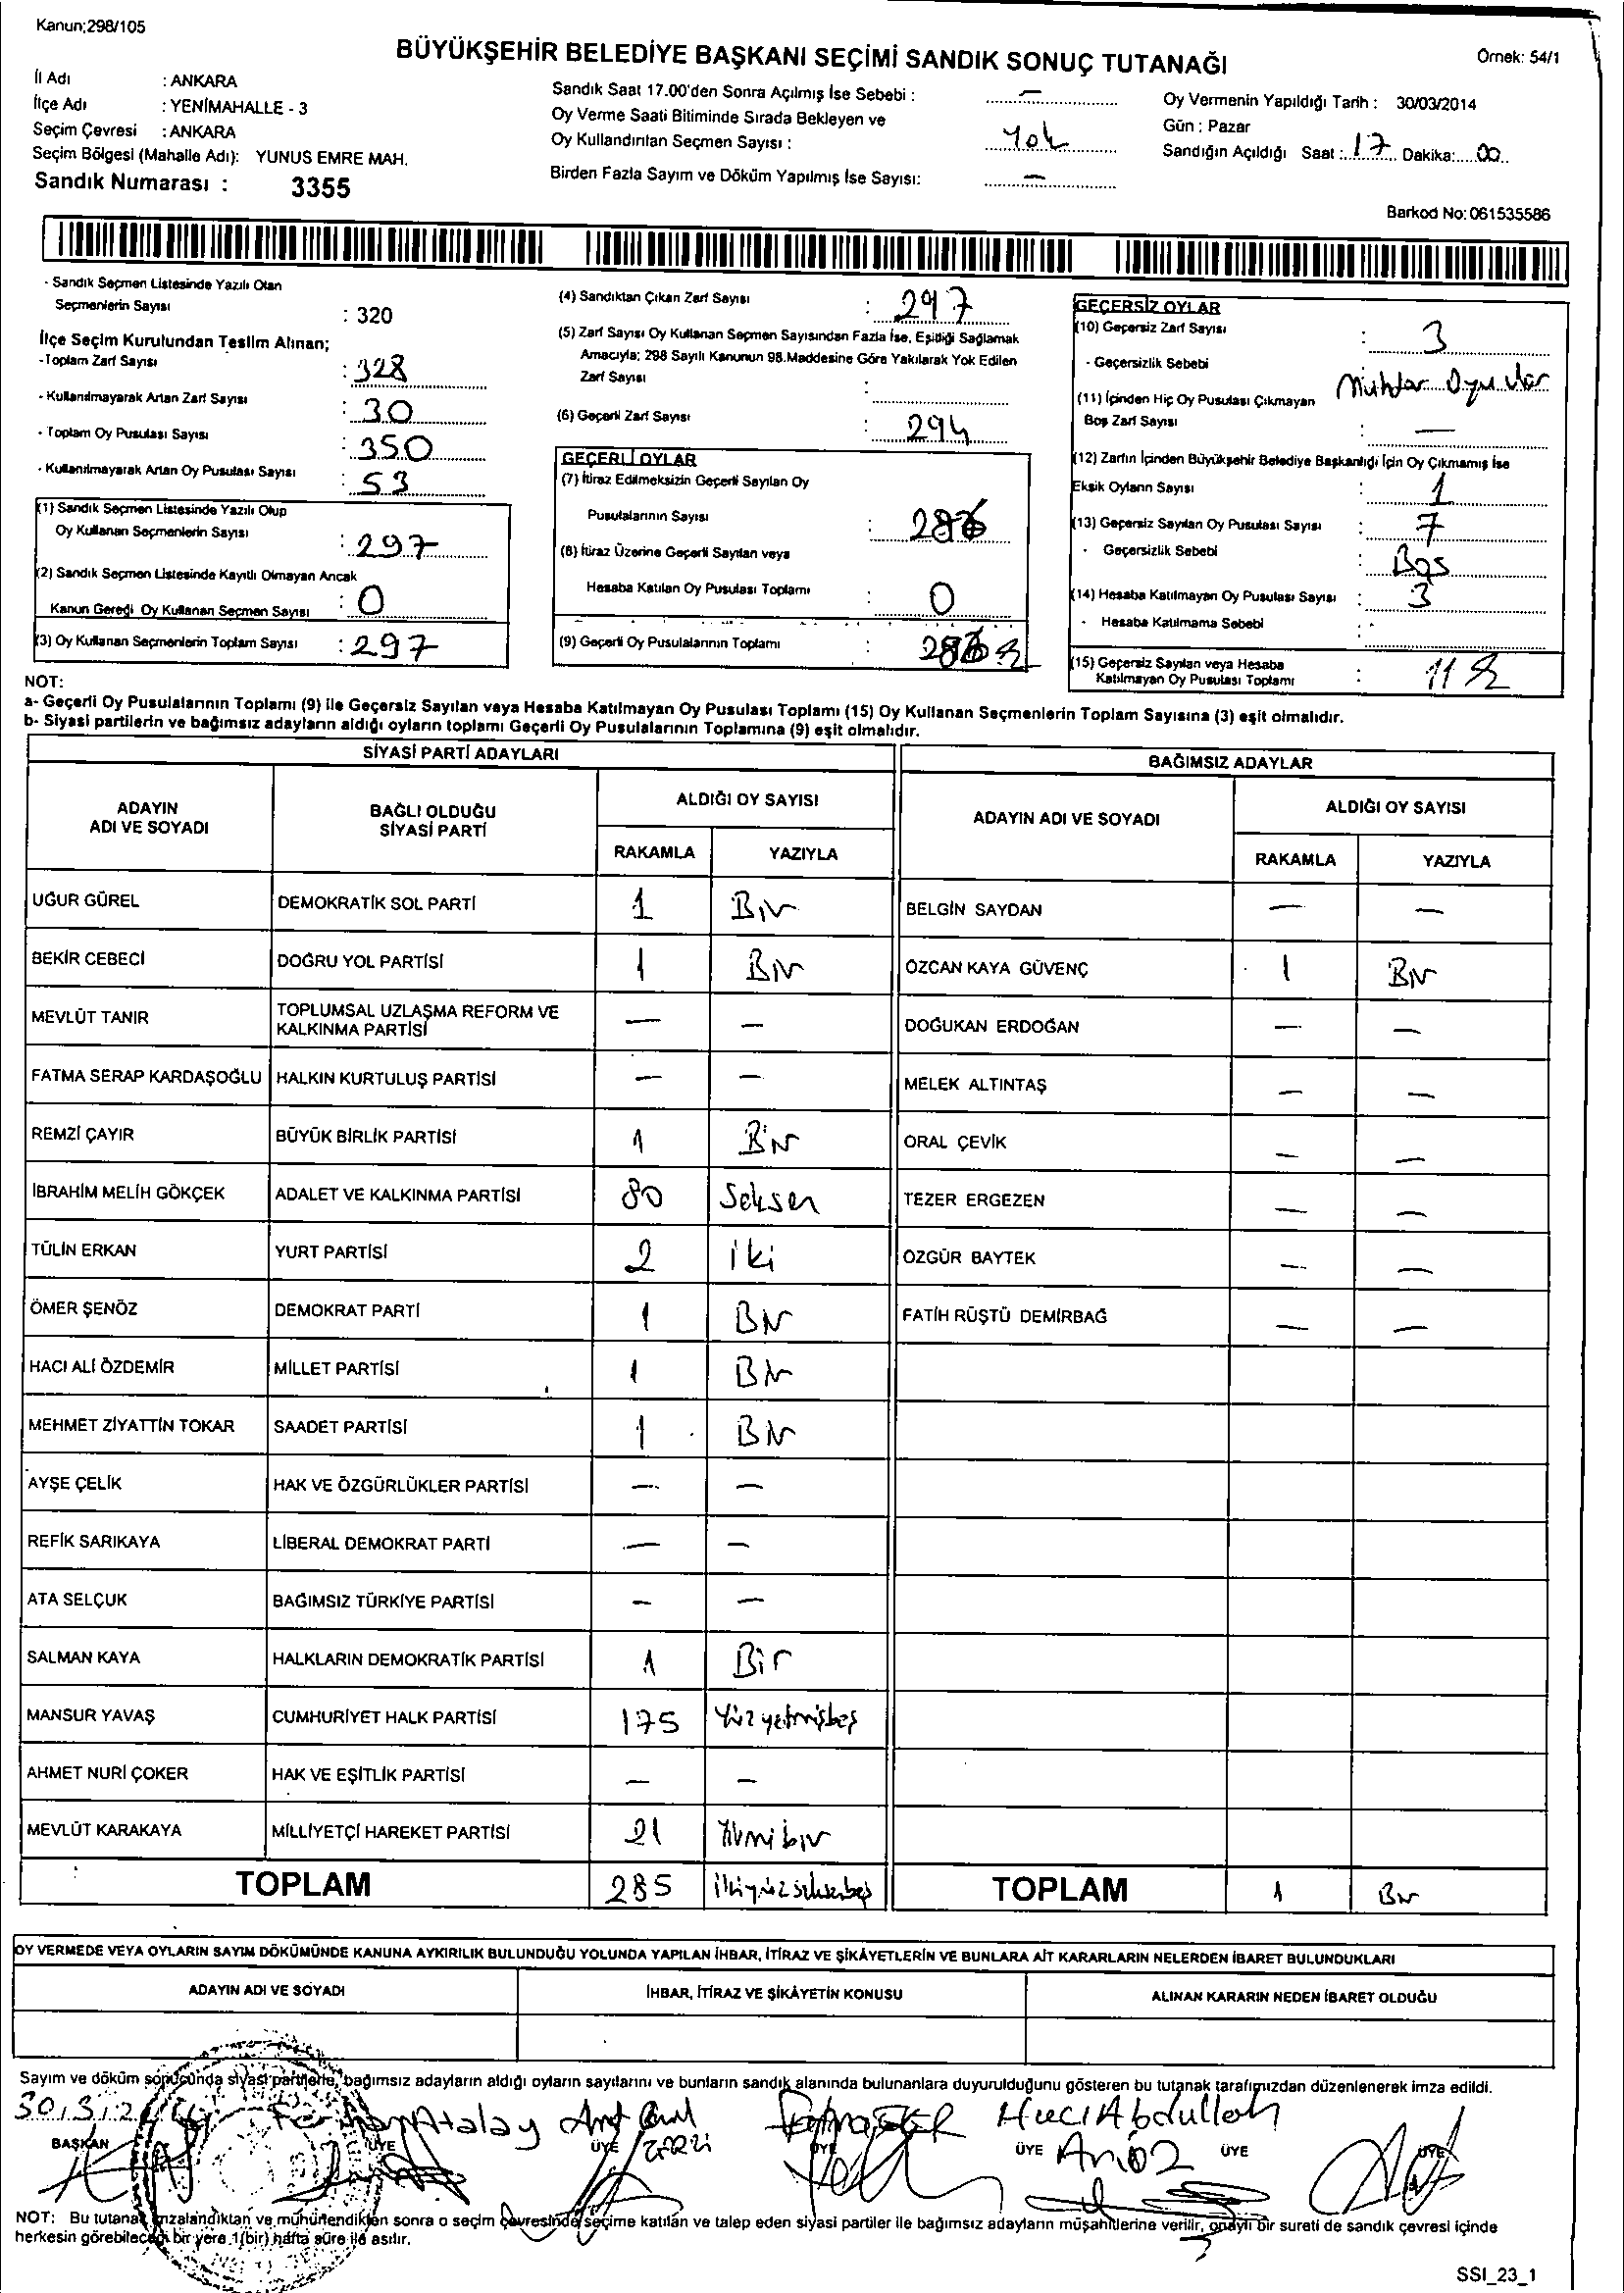 Kanun;298/105
BÜYÜKŞEHİR BELEDİYE BAŞKANI SEÇİMİ SANDIK SONUÇ TUTANAĞI
Örnek: 54/1
İl Adı : ANKARA
İlçe Adı : YENİMAHALLE - 3
Seçim Çevresi : ANKARA
Seçim Bölgesi (Mahalle Adı): YUNUS EMRE MAH.
Sandık Numarası : 3355
Sandık Saat 17.00'den Sonra Açılmış İse Sebebi : —
Oy Verme Saati Bitiminde Sırada Bekleyen ve
Oy Kullandırılan Seçmen Sayısı : Yok
Birden Fazla Sayım ve Döküm Yapılmış İse Sayısı: —
Oy Vermenin Yapıldığı Tarih : 30/03/2014
Gün : Pazar
Sandığın Açıldığı Saat : 17 Dakika: 00
Barkod No: 061535586
- Sandık Seçmen Listesinde Yazılı Olan
Seçmenlerin Sayısı : 320
İlçe Seçim Kurulundan Teslim Alınan;
-Toplam Zarf Sayısı : 328
- Kullanılmayarak Artan Zarf Sayısı : 30
- Toplam Oy Pusulası Sayısı : 350
- Kullanılmayarak Artan Oy Pusulası Sayısı : 53
(1) Sandık Seçmen Listesinde Yazılı Olup
Oy Kullanan Seçmenlerin Sayısı : 297
(2) Sandık Seçmen Listesinde Kayıtlı Olmayan Ancak
Kanun Gereği Oy Kullanan Seçmen Sayısı : 0
(3) Oy Kullanan Seçmenlerin Toplam Sayısı : 297
(4) Sandıktan Çıkan Zarf Sayısı : 297
(5) Zarf Sayısı Oy Kullanan Seçmen Sayısından Fazla İse, Eşitliği Sağlamak
Amacıyla; 298 Sayılı Kanunun 98.Maddesine Göre Yakılarak Yok Edilen
Zarf Sayısı :
(6) Geçerli Zarf Sayısı : 294
GEÇERLİ OYLAR
(7) İtiraz Edilmeksizin Geçerli Sayılan Oy
Pusulalarının Sayısı : 286
(8) İtiraz Üzerine Geçerli Sayılan veya
Hesaba Katılan Oy Pusulası Toplamı : 0
(9) Geçerli Oy Pusulalarının Toplamı : 286
GEÇERSİZ OYLAR
(10) Geçersiz Zarf Sayısı : 3
- Geçersizlik Sebebi Muhtar Oyu var
(11) İçinden Hiç Oy Pusulası Çıkmayan
Boş Zarf Sayısı : —
(12) Zarfın İçinden Büyükşehir Belediye Başkanlığı İçin Oy Çıkmamış İse
Eksik Oyların Sayısı : 1
(13) Geçersiz Sayılan Oy Pusulası Sayısı : 7
- Geçersizlik Sebebi : Boş
(14) Hesaba Katılmayan Oy Pusulası Sayısı : 3
- Hesaba Katılmama Sebebi :
(15) Geçersiz Sayılan veya Hesaba
Katılmayan Oy Pusulası Toplamı : 11
NOT:
a- Geçerli Oy Pusulalarının Toplamı (9) ile Geçersiz Sayılan veya Hesaba Katılmayan Oy Pusulası Toplamı (15) Oy Kullanan Seçmenlerin Toplam Sayısına (3) eşit olmalıdır.
b- Siyasi partilerin ve bağımsız adayların aldığı oyların toplamı Geçerli Oy Pusulalarının Toplamına (9) eşit olmalıdır.
SİYASİ PARTİ ADAYLARI
ADAYIN ADI VE SOYADI BAĞLI OLDUĞU SİYASİ PARTİ ALDIĞI OY SAYISI
RAKAMLA YAZIYLA
UĞUR GÜREL DEMOKRATİK SOL PARTİ 1 Bir
BEKİR CEBECİ DOĞRU YOL PARTİSİ 1 Bir
MEVLÜT TANIR TOPLUMSAL UZLAŞMA REFORM VE KALKINMA PARTİSİ — —
FATMA SERAP KARDAŞOĞLU HALKIN KURTULUŞ PARTİSİ — —
REMZİ ÇAYIR BÜYÜK BİRLİK PARTİSİ 1 Bir
İBRAHİM MELİH GÖKÇEK ADALET VE KALKINMA PARTİSİ 80 Seksen
TÜLİN ERKAN YURT PARTİSİ 2 iki
ÖMER ŞENÖZ DEMOKRAT PARTİ 1 Bir
HACI ALİ ÖZDEMİR MİLLET PARTİSİ 1 Bir
MEHMET ZİYATTİN TOKAR SAADET PARTİSİ 1 Bir
AYŞE ÇELİK HAK VE ÖZGÜRLÜKLER PARTİSİ — —
REFİK SARIKAYA LİBERAL DEMOKRAT PARTİ — —
ATA SELÇUK BAĞIMSIZ TÜRKİYE PARTİSİ — —
SALMAN KAYA HALKLARIN DEMOKRATİK PARTİSİ 1 Bir
MANSUR YAVAŞ CUMHURİYET HALK PARTİSİ 175 Yüzyetmişbeş
AHMET NURİ ÇOKER HAK VE EŞİTLİK PARTİSİ — —
MEVLÜT KARAKAYA MİLLİYETÇİ HAREKET PARTİSİ 21 Yirmibir
TOPLAM 285 ikiyüzseksenbeş
BAĞIMSIZ ADAYLAR
ADAYIN ADI VE SOYADI ALDIĞI OY SAYISI
RAKAMLA YAZIYLA
BELGİN SAYDAN — —
ÖZCAN KAYA GÜVENÇ 1 Bir
DOĞUKAN ERDOĞAN — —
MELEK ALTINTAŞ — —
ORAL ÇEVİK — —
TEZER ERGEZEN — —
ÖZGÜR BAYTEK — —
FATİH RÜŞTÜ DEMİRBAĞ — —
TOPLAM 1 Bir
OY VERMEDE VEYA OYLARIN SAYIM DÖKÜMÜNDE KANUNA AYKIRILIK BULUNDUĞU YOLUNDA YAPILAN İHBAR, İTİRAZ VE ŞİKÂYETLERİN VE BUNLARA AİT KARARLARIN NELERDEN İBARET BULUNDUKLARI
ADAYIN ADI VE SOYADI İHBAR, İTİRAZ VE ŞİKÂYETİN KONUSU ALINAN KARARIN NEDEN İBARET OLDUĞU
Sayım ve döküm sonucunda siyasi partilerle, bağımsız adayların aldığı oyların sayılarını ve bunların sandık alanında bulunanlara duyurulduğunu gösteren bu tutanak tarafımızdan düzenlenerek imza edildi.
30.3.2 Atalay Hacı Abdullah
BAŞKAN ÜYE ÜYE ÜYE ÜYE Arıöz ÜYE ÜYE
NOT: Bu tutanak imzalandıktan ve mühürlendikten sonra o seçim çevresinde seçime katılan ve talep eden siyasi partiler ile bağımsız adayların müşahitlerine verilir, onaylı bir sureti de sandık çevresi içinde
herkesin görebileceği bir yere 1(bir) hafta süre ile asılır.
SSI_23_1